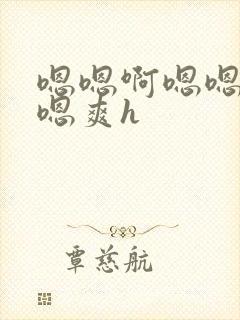 嗯嗯啊嗯嗯
嗯爽h
覃慈航